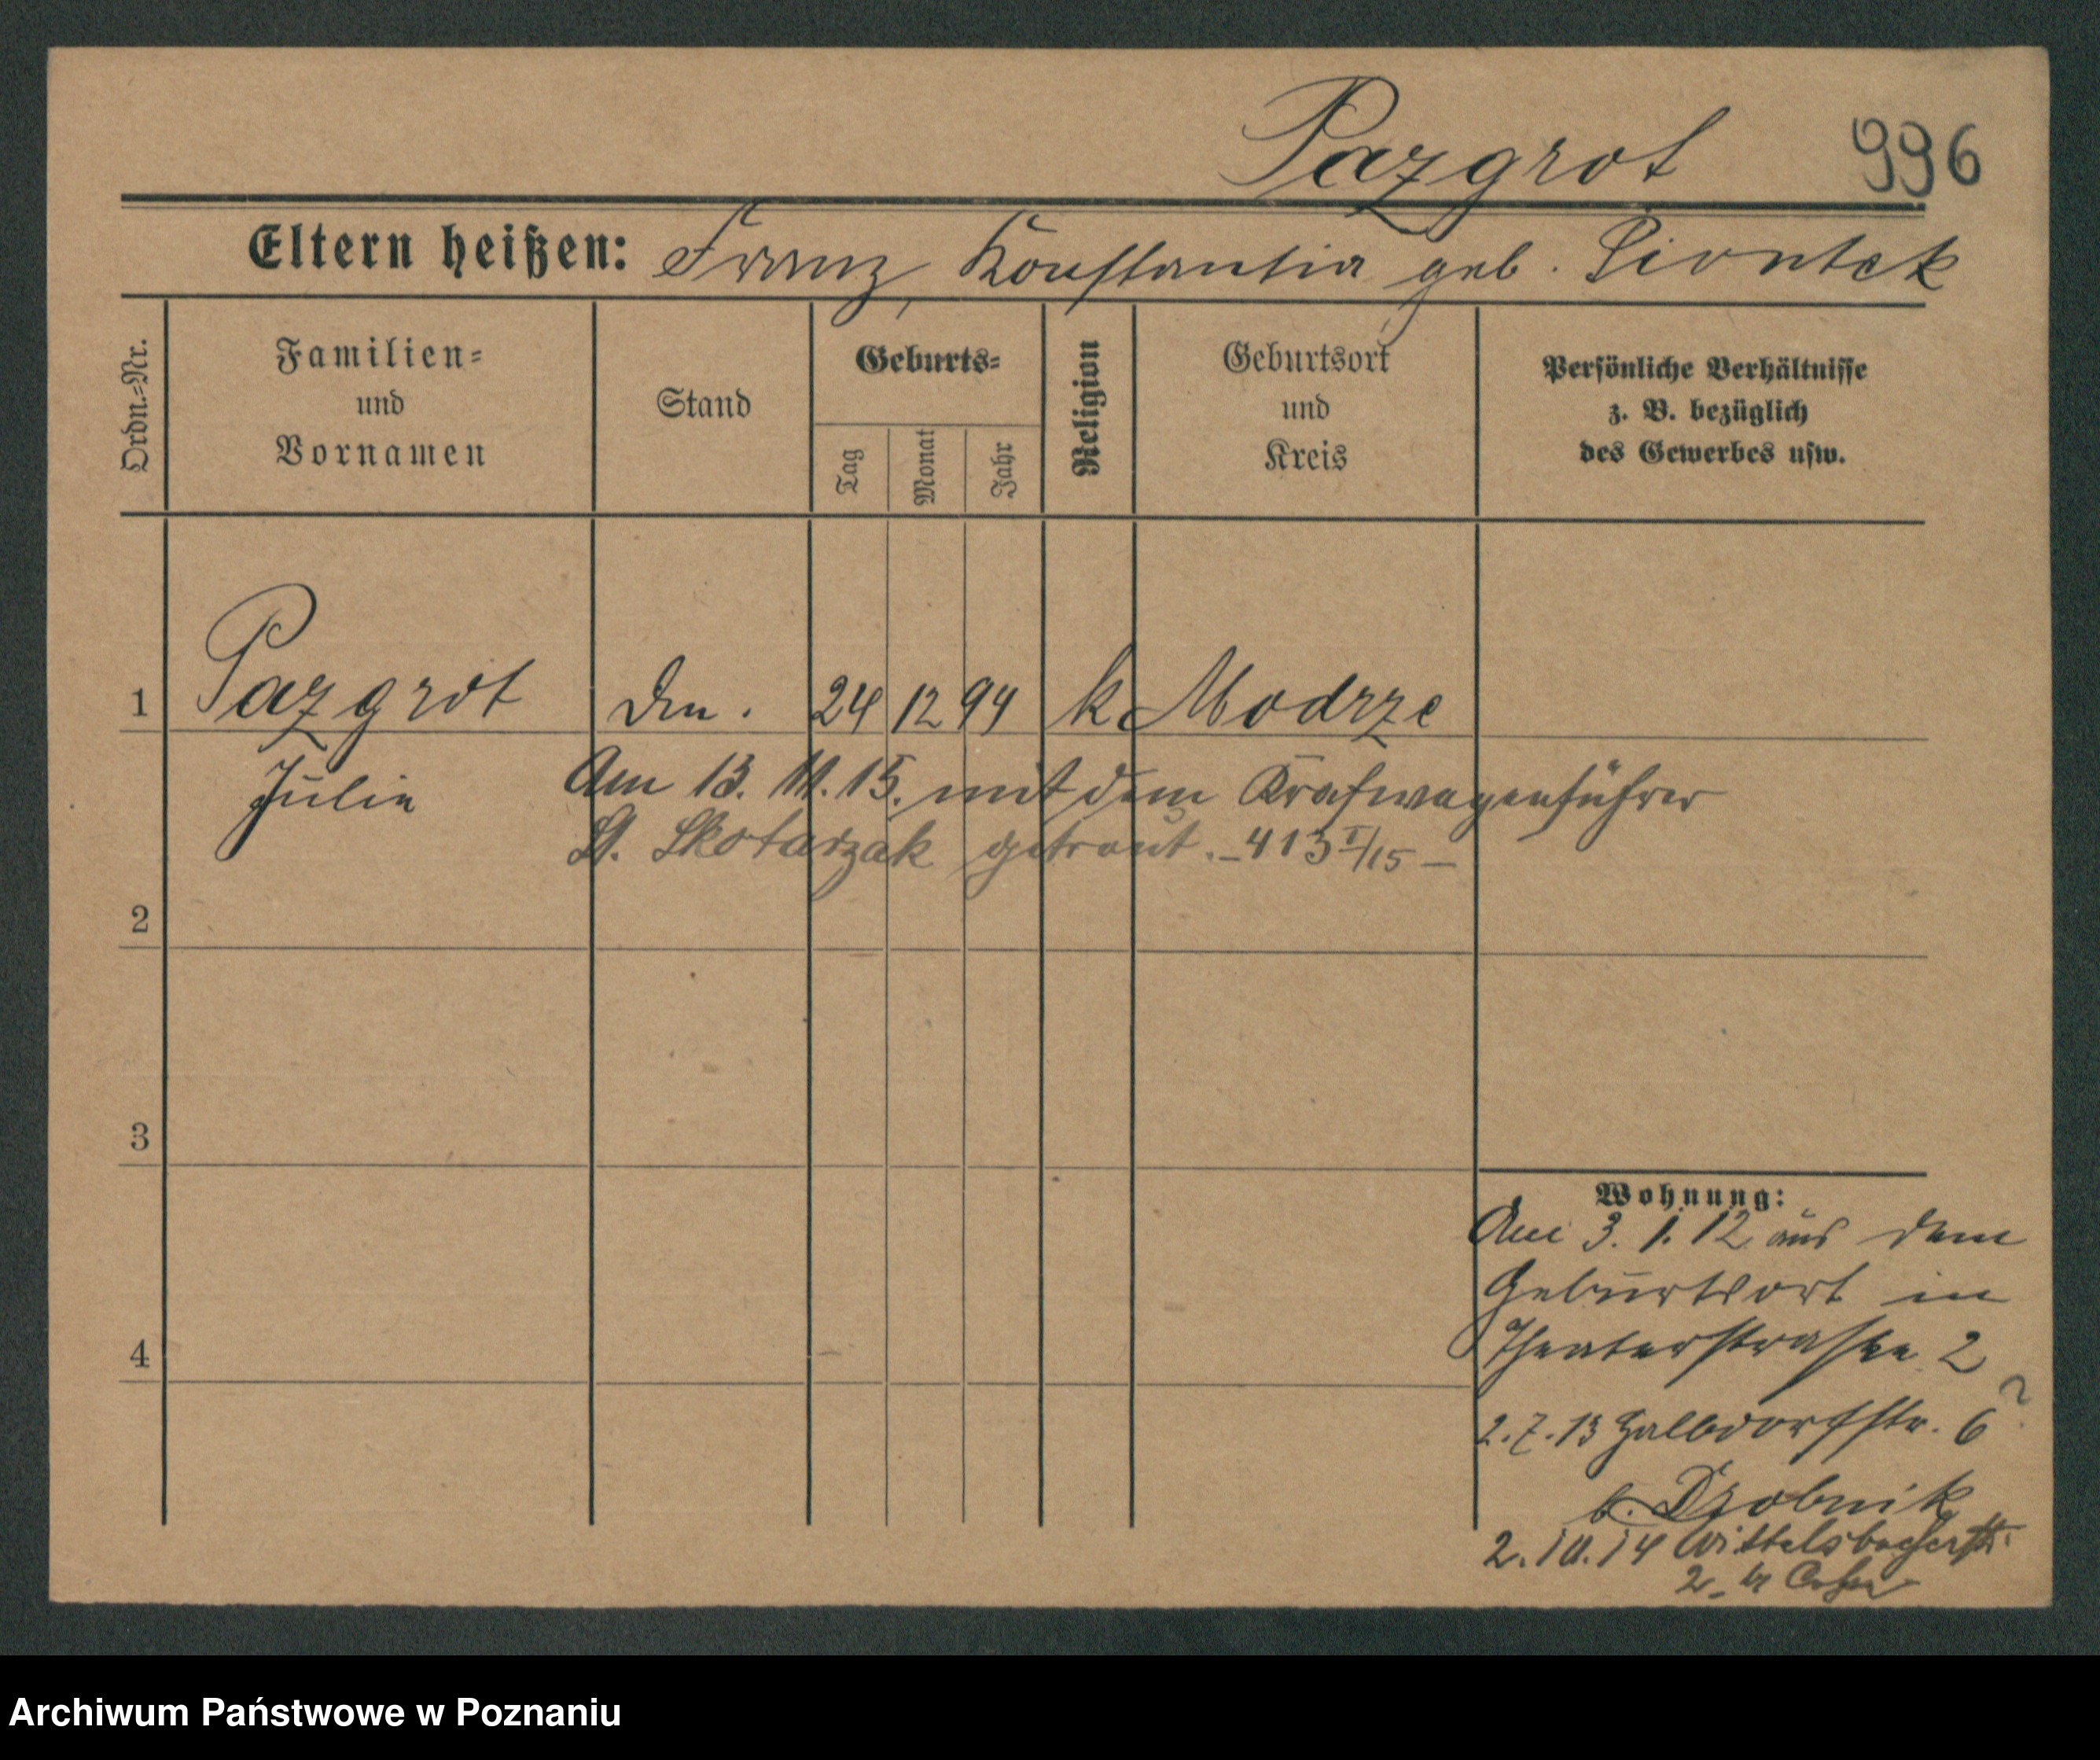 Pazgrot 996
Eltern heißen: Franz, Konstantia geb. Piontek
Ordn.=Nr.
Familien=
und
Vornamen
Stand
Geburts=
Tag
Monat
Jahr
Religion
Geburtsort
und
Kreis
Persönliche Verhältnisse
z. B. bezüglich
des Gewerbes usw.
1 Pazgrot 24 12 94 k Modrze
Julie Am 13. 11. 15. mit dem Krafwagenführer
St. Skotarzak getraut. – 413 I/15 –
2
3
4
Wohnung:
Am 3. 1. 12 aus dem
Geburtsort in
Theaterstraße 2
2. 7. 13 Halbdorfstr. 6 ?
b. Drobnik
2. 10. 14 Wittelsbacherstr.
2
Archiwum Państwowe w Poznaniu